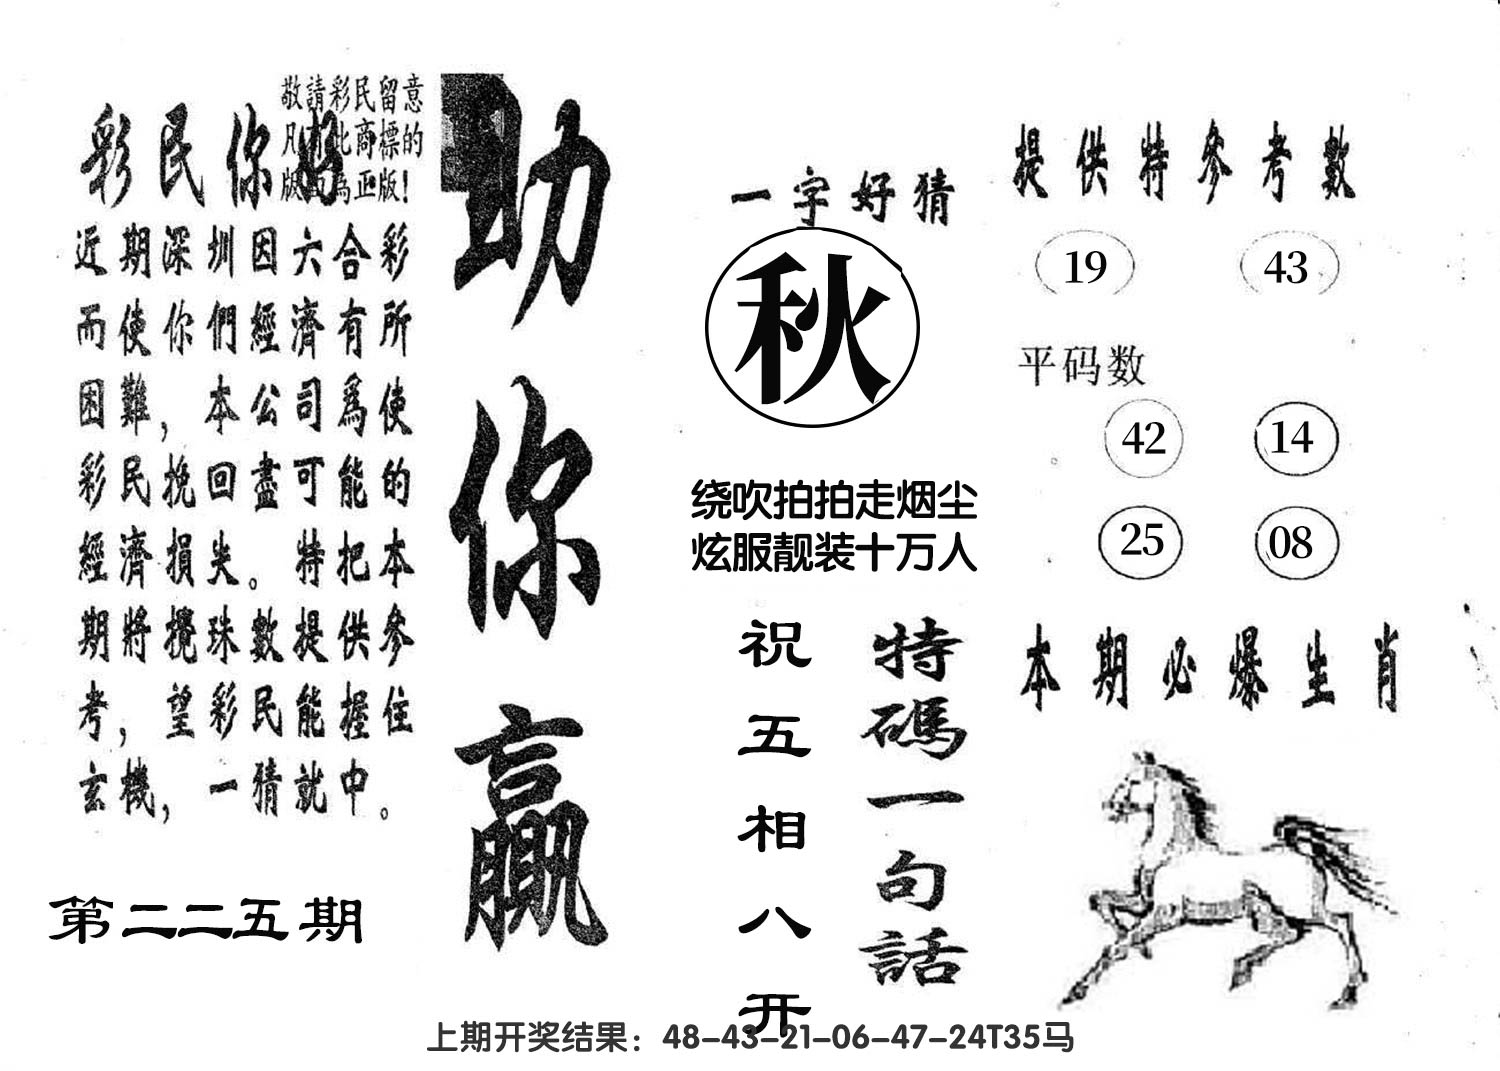 敬請彩民留意
凡有此商標的
版面為正版!
彩民你好
近期深圳因六合彩
而使你們經濟有所
困難，本公司爲使
彩民挽回盡可能的
經濟損失。特把本
期將攪珠數提供參
考，望彩民能握住
玄機，一猜就中。
第二二五期
助你贏
一字好猜
秋
绕吹拍拍走烟尘
炫服靓装十万人
特碼一句話
祝五相八开
提供特參考數
19 43
平码数
42 14
25 08
本期必爆生肖
上期开奖结果：48-43-21-06-47-24T35马